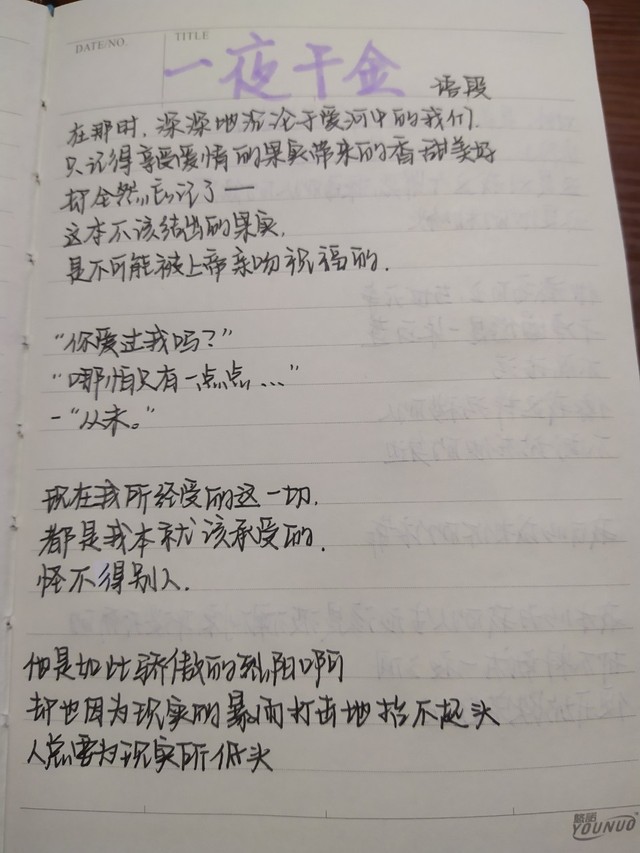 DATE/NO.
TITLE
一夜千金 语段
在那时，深深地沉沦于爱河中的我们.
只记得享受爱情的果实带来的香甜美好
却全然忘记了—
这本不该结出的果实.
是不可能被上帝亲吻祝福的.
“你爱过我吗？”
“哪怕只有一点点...”
-“从未。”
现在我所经受的这一切.
都是我本就该承受的.
怪不得别人.
他是如此骄傲的烈阳啊
却也因为现实的暴雨打击地抬不起头
人总要为现实所低头
悠诺
YOUNUO